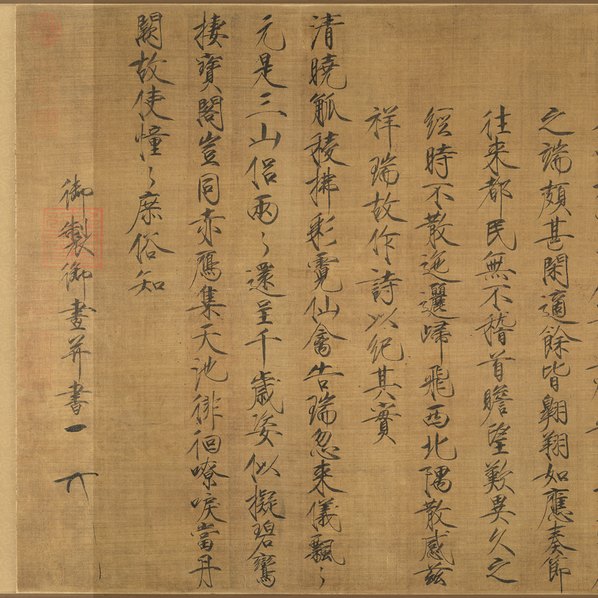 之端頗甚閑適餘皆翺翔如應奏節
往來都民無不稽首瞻望歎異久之
經時不散迤邐歸飛西北隅散感茲
祥瑞故作詩以紀其實
清曉觚稜拂彩霓仙禽告瑞忽來儀飄〻
元是三山侶兩〻還呈千歲姿似擬碧鸞
棲寶閣豈同赤鴈集天池徘徊嘹唳當丹
闕故使憧〻庶俗知
御製御畫并書